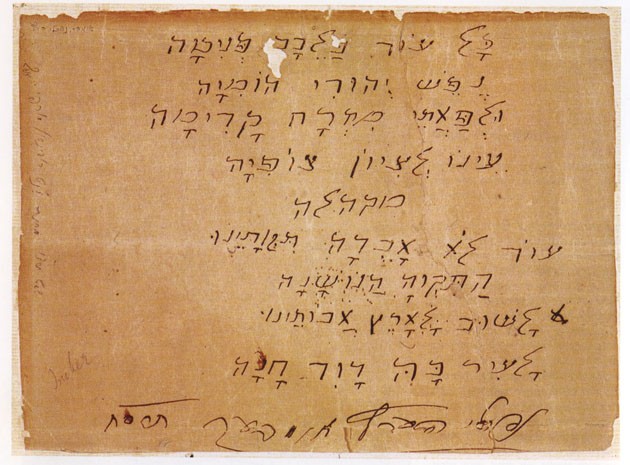 כָּל עוֹד בַּלֵּבָב פְּנִימָה
נֶפֶשׁ יְהוּדִי הוֹמִיָּה
וּלְפַאֲתֵי מִזְרָח קָדִימָה
עֵינוֹ לְצִיּוֹן צוֹפִיָּה
מקהלה
עוֹד לֹא אָבְדָה תִּקְוָתֵינוּ
הַתִּקְוָה הַנּוֹשָׁנָה
לָשׁוּב לְאָרֶץ אֲבוֹתֵינוּ
לָעִיר בָּהּ דָּוִד חָנָה
נפתלי הערץ אימבער תרסח
Imber